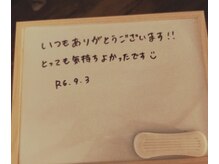 いつもありがとうございます!!
とっても気持ちよかったです
R6.9.3